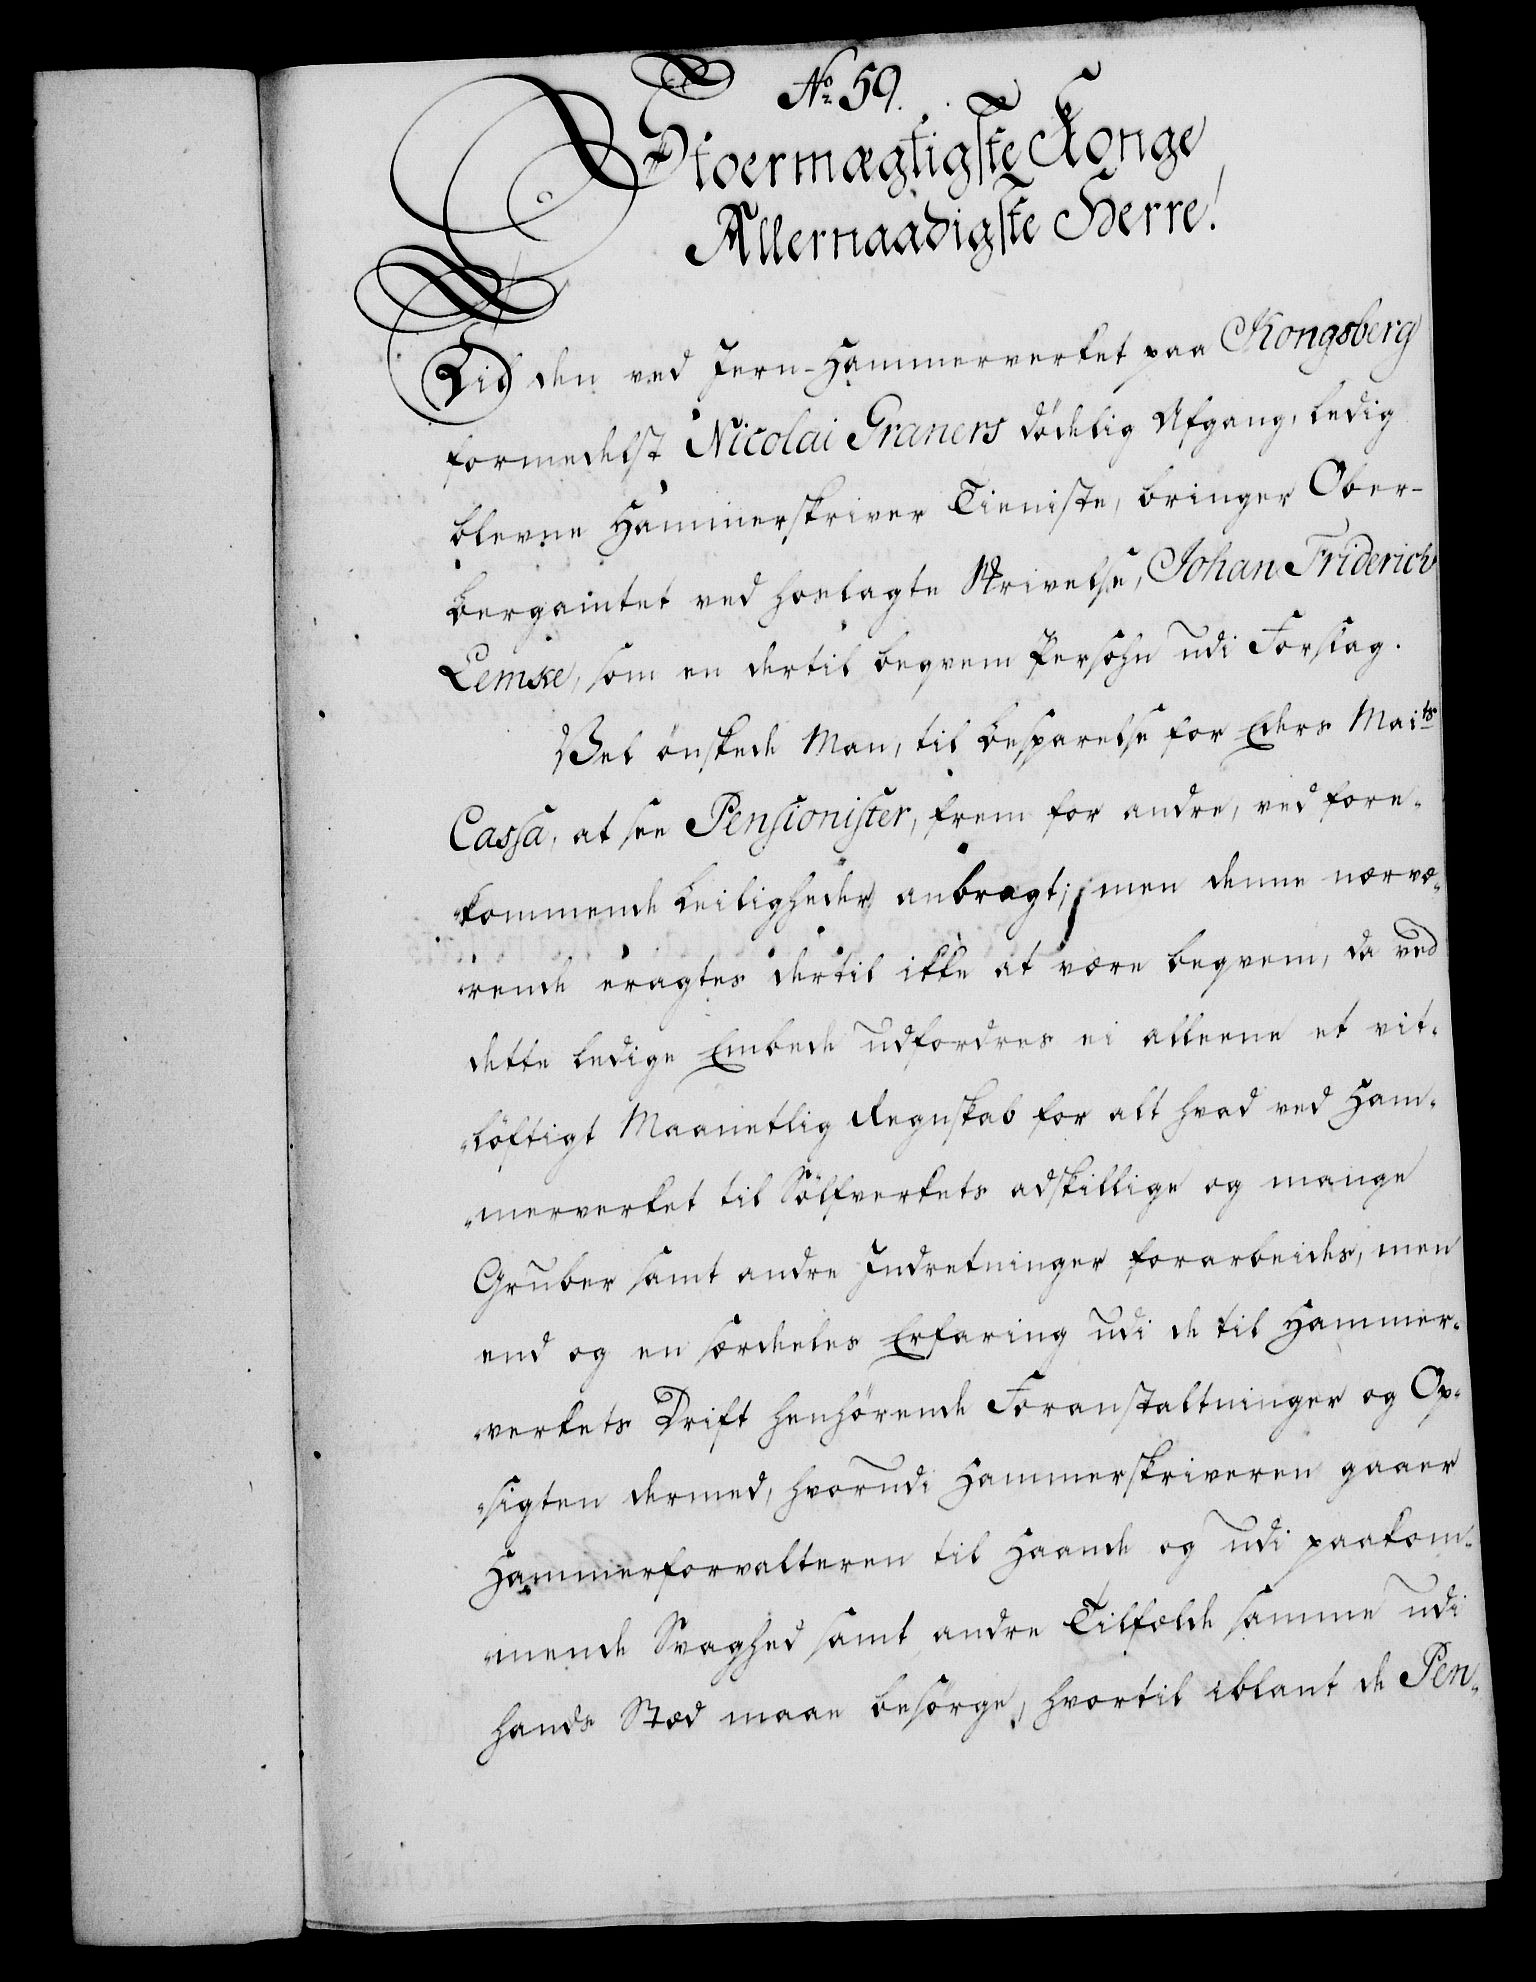 No. 59.
Stoermægtigste Konge
Allernaadigste Herre!
Til den ved Jern-Hammerverket paa Kongsberg
formedelst Nicolai Graners dödelig Afgang, ledig
blevne Hammerskriver Tieniste, bringer Ober-
bergamtet ved hoslagte Skrivelse, Johan Friderich
Lemke, som en dertil beqvem Persohn udi Forslag.
Vel önskede Man, til besparelse for Eders Maits
Cassa, at see Pensionister, frem for andre, ved fore-
kommende Leiligheder anbragt; men denne nærvæ-
rende eragtes dertil ikke at være beqvem, da ved
dette ledige Embede udfordres ei alleene et vit-
löftigt Maanetlig Regnskab for alt hvad ved Ham-
merverket til Sölfverkets adskillige og mange
Gruber samt andre Indretninger forarbeides, men
end og en særdeeles Erfaring udi de til Hammer-
verkets Drift henhörende Foranstaltninger og Op-
sigten dermed, hvorudi Hammerskriveren gaaer
Hammerforvalteren til Haande og udi paakom-
mende Svaghed samt andre Tilfælde samme udi
hands Stæd maae besörge, hvortil iblant de Pen-